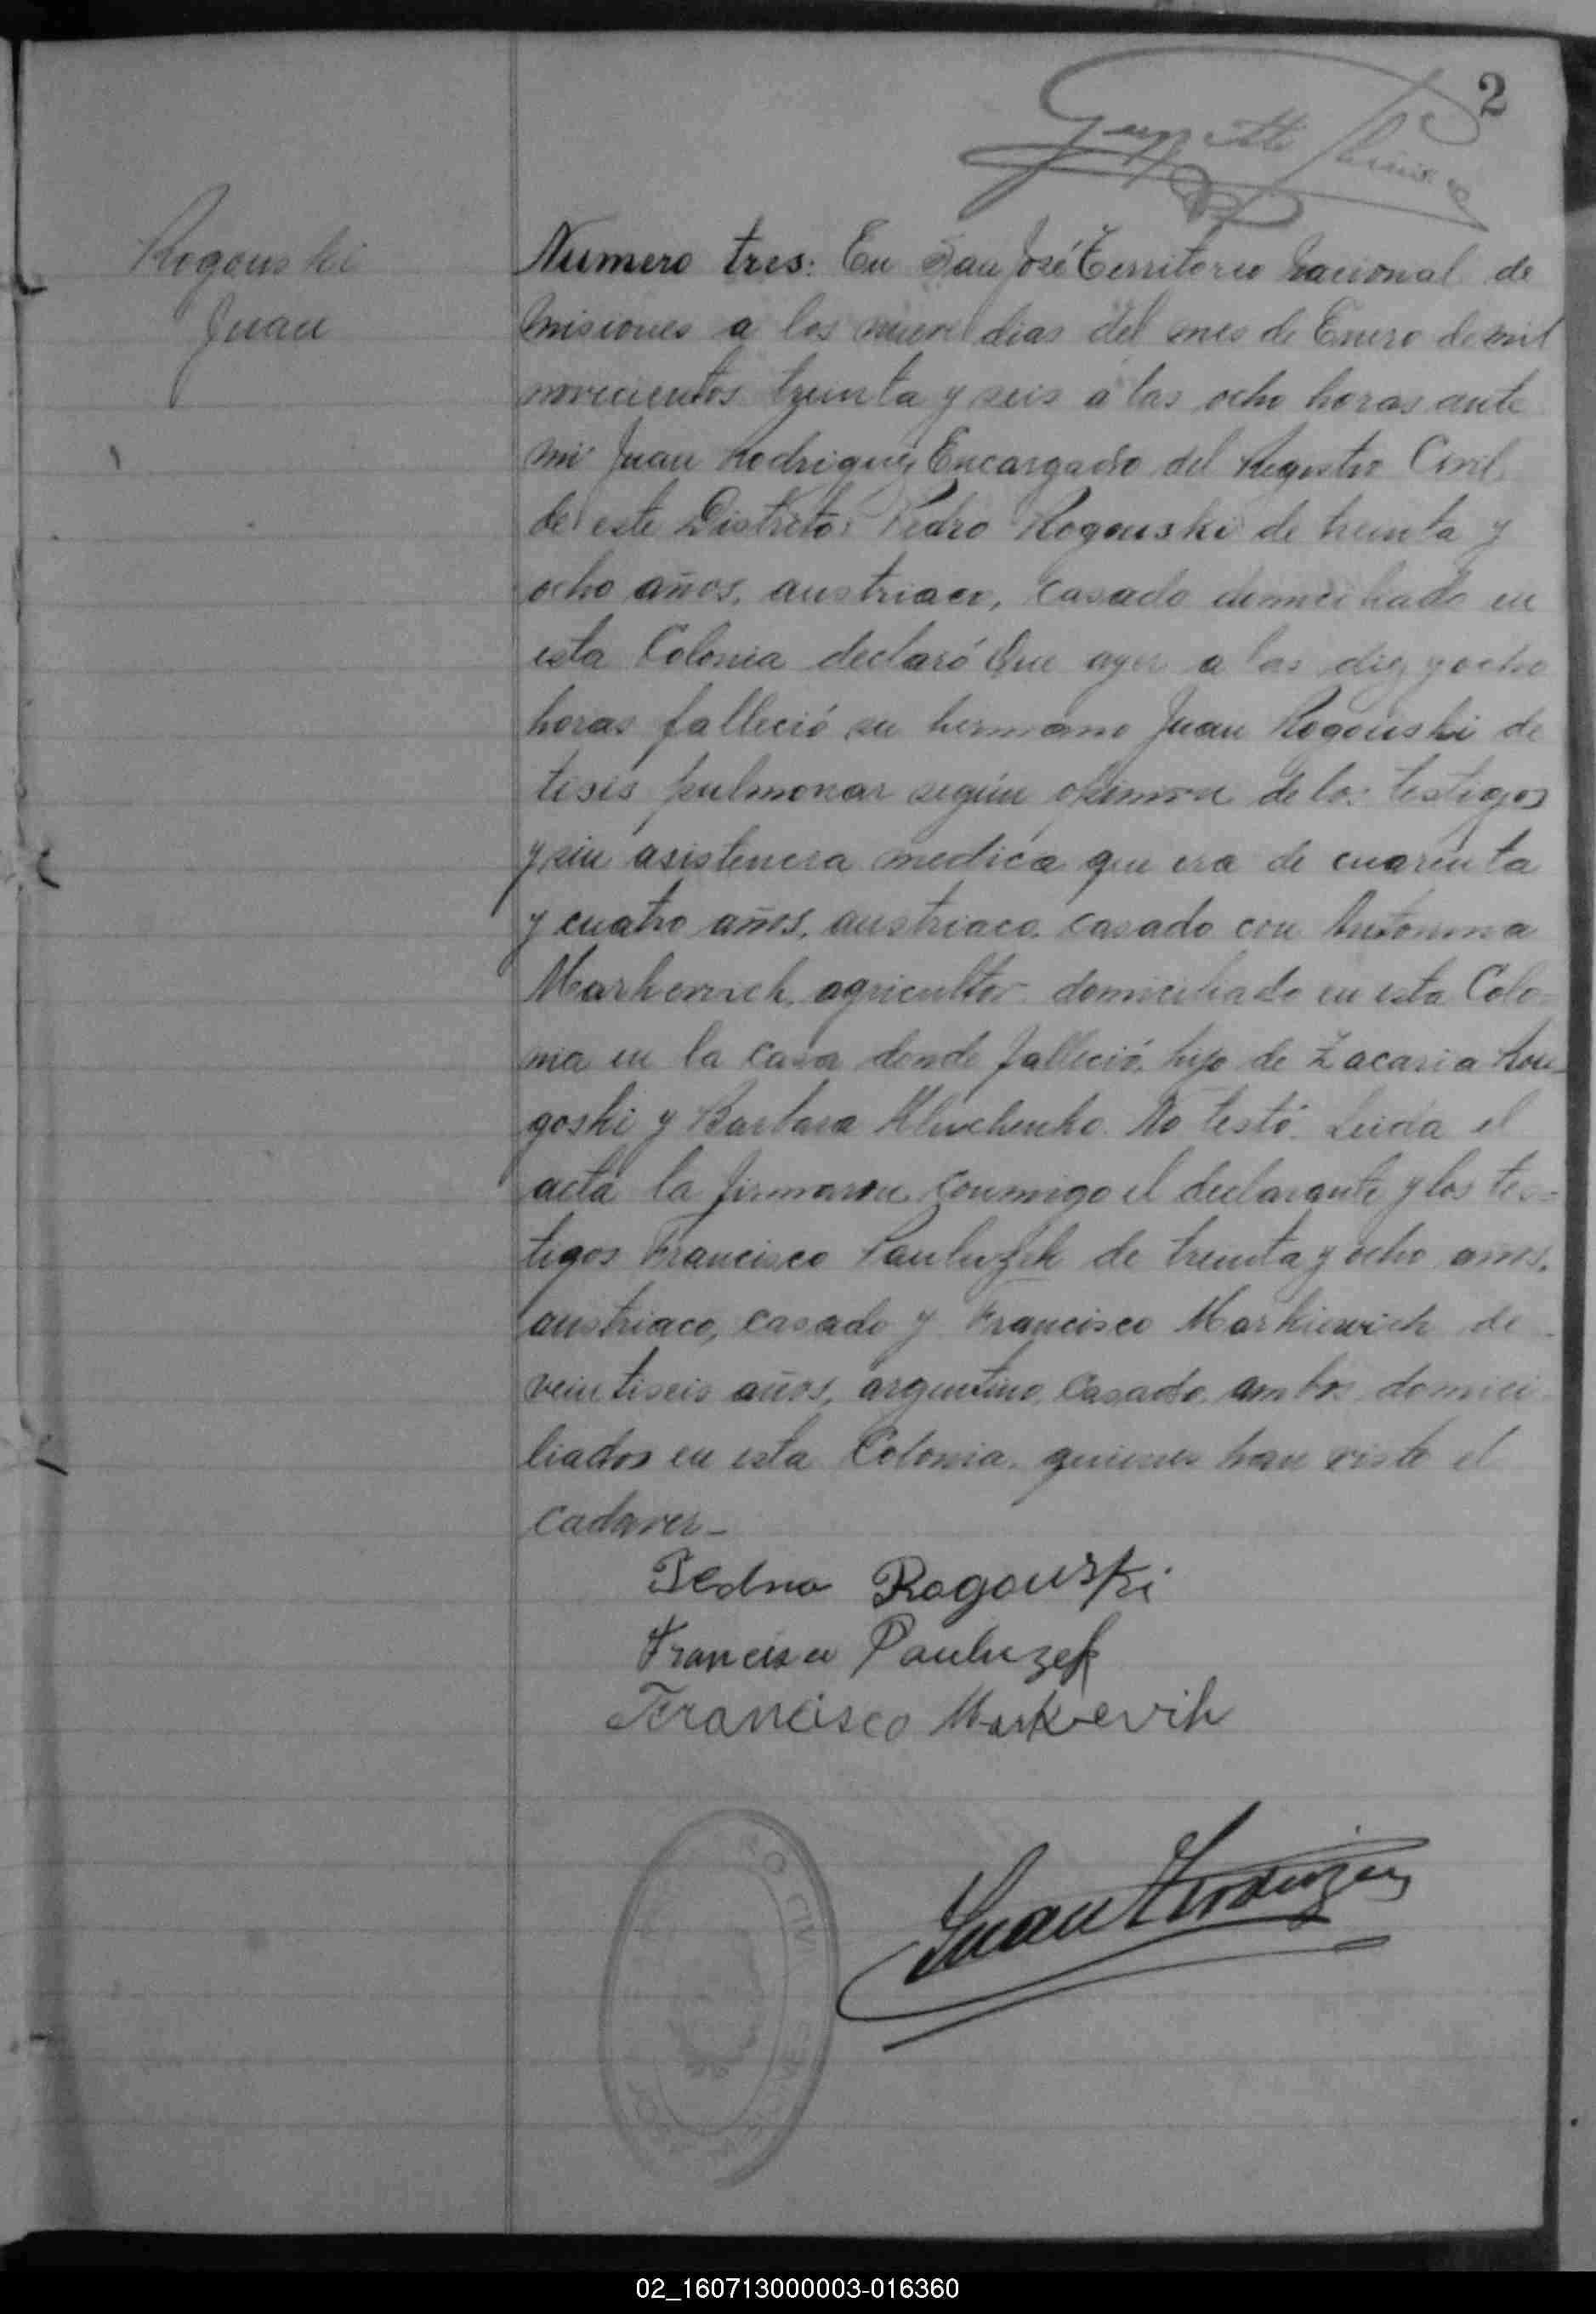 2
Rogouski
Juan
Numero tres: En San José Territorio Nacional de
Misiones a los nueve dias del mes de Enero de mil
novecientos treinta y seis a las ocho horas ante
mi Juan Rodriguez Encargado del Registro Civil
de este Distrito: Pedro Rogouski de treinta y
ocho años, austriaco, casado domiciliado en
esta Colonia declaró Que ayer a las diez y ocho
horas falleció su hermano Juan Rogouski de
tesis pulmonar según opinion de los testigos
y sin asistencia medica que era de cuarenta
y cuatro años, austriaco. casado con Antonina
Markervich, agricultor domiciliado en esta Colo-
nia en la casa donde falleció, hijo de Zacaria Rou-
goski y Barbara Klivchenko. No testó. Leida el
acta la firmaron conmigo el declarante y los tes-
tigos Francisco Pauluzek de treinta y ocho años,
austriaco, casado y Francisco Markiewich de
veintiseis años, argentino, casado, ambos domici-
liados en esta Colonia, quienes han visto el
cadaver-
Pedro Rogouski
Francisco Pauluzek
Francisco Markevih
Juan Rodriguez
O CIVIL
02_160713000003-016360